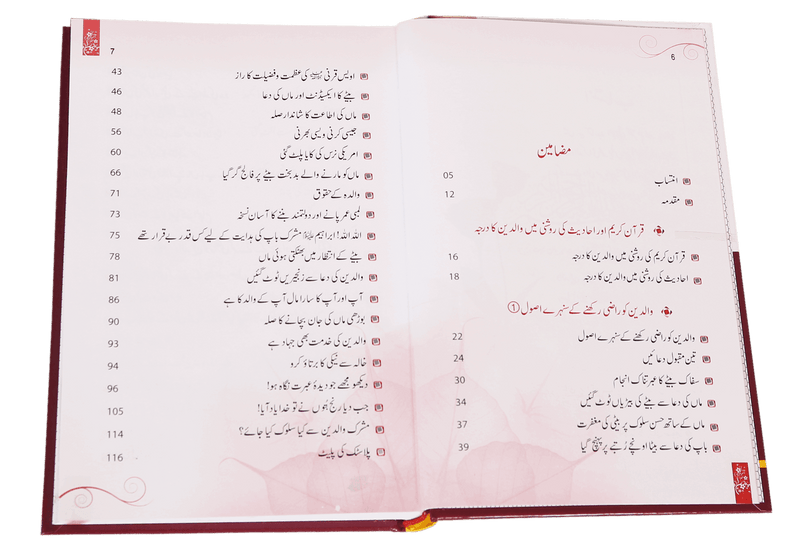 6
مضامین
انتساب 05
مقدمہ 12
قرآن کریم اور احادیث کی روشنی میں والدین کا درجہ
قرآن کریم کی روشنی میں والدین کا درجہ 16
احادیث کی روشنی میں والدین کا درجہ 18
والدین کو راضی رکھنے کے سنہرے اصول ①
والدین کو راضی رکھنے کے سنہرے اصول 22
تین مقبول دعائیں 24
سفاک بیٹے کا عبرتناک انجام 30
ماں کی دعا سے بیٹے کی بیڑیاں ٹوٹ گئیں 34
ماں کے ساتھ حسن سلوک پر بیٹی کی مغفرت 37
باپ کی دعا سے بیٹا اونچے رُتبے پر پہنچ گیا 39
7
اویس قرنی کی عظمت و فضیلت کا راز 43
بیٹے کا ایکسیڈنٹ اور ماں کی دعا 46
ماں کی اطاعت کا شاندار صلہ 48
جیسی کرنی ویسی بھرنی 56
امریکی نرس کی کایا پلٹ گئی 60
ماں کو مارنے والے بدبخت بیٹے پر فالج گر گیا 66
والدہ کے حقوق 71
لمبی عمر پانے اور دولتمند بننے کا آسان نسخہ 73
اللہ اللہ! ابراہیم مشرک باپ کی ہدایت کے لیے کس قدر بے قرار تھے 75
بیٹے کے انتظار میں بھٹکتی ہوئی ماں 78
والدین کی دعا سے زنجیریں ٹوٹ گئیں 81
آپ اور آپ کا سارا مال آپ کے والد کا ہے 86
بوڑھی ماں کی جان بچانے کا صلہ 90
والدین کی خدمت بھی جہاد ہے 93
خالہ سے نیکی کا برتاؤ کرہ 94
دیکھو مجھے جو دیدۂ عبرت نگاہ ہو! 96
جب دیا رنج بُتوں نے تو خدا یاد آیا! 105
مشرک والدین سے کیا سلوک کیا جائے؟ 114
پلاسٹک کی پلیٹ 116